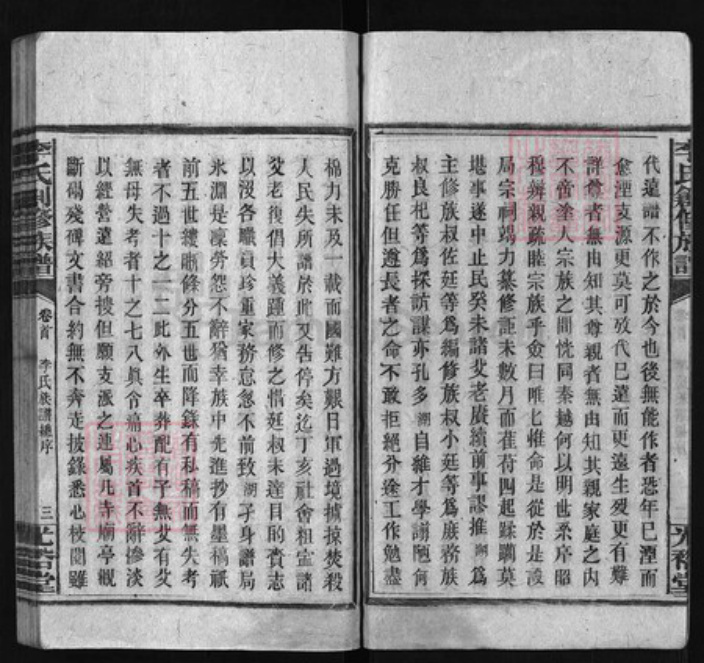 代遠譜不作之於今也後無能作者恐年已湮而
愈湮支源更莫可攷代已遠而更遠生歿更有難
詳尊者無由知其尊親者無由知其親家庭之内
不啻塗人宗族之間恍同秦越何以明世系序昭
穆辨親疏睦宗族乎僉曰唯七惟命是從於是設
局宗祠竭力纂修詎未數月而萑苻四起蹂躪莫
堪事遂中止民癸未諸父老賡續前事謬推湖為
主修族叔佐廷等為編修族叔小廷等為庶務族
叔良杞等為採訪謀亦孔多湖自維才學譾陋何
克勝任但遵長者之命不敢拒絕分途工作勉盡
李氏創修族譜
光裕堂
棉力未及一載而國難方艱日軍過境擄掠焚殺
人民失所譜於此又告停矣迄丁亥社會粗寧諸
父老復倡大義踵而修之惜廷叔未達目的賫志
以沒各職員珍重家務怠忽不前致湖孑身譜局
氷淵是凜勞怨不辭猶幸族中先進抄有墨稿祇
前五世縷晰修分五世而降錄有私稿而無失考
者不過十之一二此外生卒葬配有子無父有父
無母失考者十之七八眞令痛心疾首不辭慘淡
以經營遠紹旁搜但願支派之連屬凡寺廟亭觀
斷碣殘碑文書合約無不奔走披錄悉心校閱雖
李氏創修族譜
卷首
李氏族譜總序
三
光裕堂